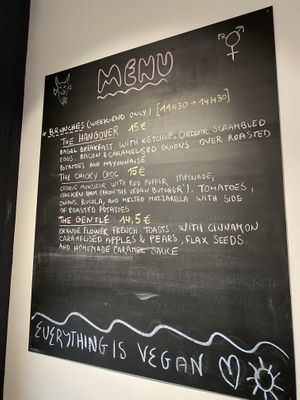 MENU
* BRUNCHES (WEEK-END ONLY) [11H30 → 14H30]
THE HANGOVER 15€
BAGEL BREAKFAST WITH KETCHUP, CHEDDAR SCRAMBLED
EGGS, BACON & CARAMELISED ONIONS OVER ROASTED
POTATOES AND MAYONNAISE
THE CHICKY CROC 15€
CROQUE MONSIEUR WITH RED PEPPER TAPENADE,
CHICKEN HAM (FROM THE VEGAN BUTCHER), TOMATOES,
ONIONS, RUCOLA, AND MELTED MOZZARELLA WITH SIDE
OF ROASTED POTATOES
THE GENTLE 14,5€
ORANGE FLOWER FRENCH TOASTS WITH CINNAMON
CARAMELISED APPLES & PEARS, FLAX SEEDS
AND HOMEMADE CARAMEL SAUCE
EVERYTHING IS VEGAN